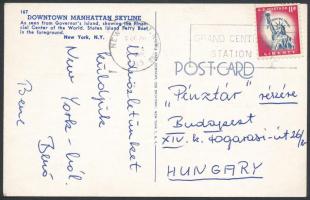 167
DOWNTOWN MANHATTAN SKYLINE
As seen from Governor's Island, showing the Finan-
cial Center of the World. Staten Island Ferry Boat
in the foreground.
New York, N.Y.
Üdvözletünket
küldjük
New York-ból.
Benő
Bence
GRAND CENTRAL
STATION
11¢
LIBERTY
POST CARD
"Pénztár" részére
Budapest
XIV. k. Fogarasi-út
HUNGARY